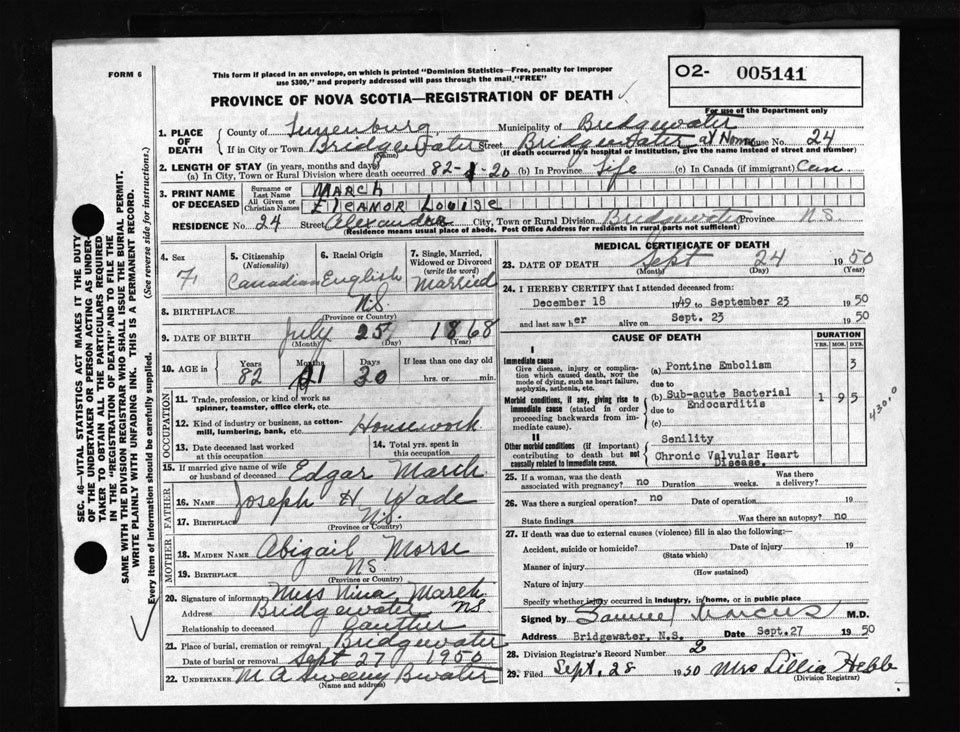 FORM 6
This form if placed in an envelope, on which is printed "Dominion Statistics—Free, penalty for improper
use $300," and properly addressed will pass through the mail, "FREE"
O2- 005141
For use of the Department only
PROVINCE OF NOVA SCOTIA—REGISTRATION OF DEATH
1. PLACE OF DEATH
County of Lunenburg, Municipality of Bridgewater
If in City or Town Bridgewater Street Bridgewater at Home House No. 24
(Name) (If death occurred in a hospital or institution, give the name instead of street and number)
2. LENGTH OF STAY (in years, months and days)
(a) In City, Town or Rural Division where death occurred 82-1-20 (b) In Province Life (c) In Canada (if immigrant) Can
3. PRINT NAME OF DECEASED
Surname or Last Name MARCH
All Given or Christian Names ELEANOR LOUISE
RESIDENCE No. 24 Street Alexandra City, Town or Rural Division Bridgewater Province N.S.
(Residence means usual place of abode. Post Office Address for residents in rural parts not sufficient)
4. Sex
F
5. Citizenship (Nationality)
Canadian
6. Racial Origin
English
7. Single, Married, Widowed or Divorced (write the word)
Married
8. BIRTHPLACE N.S.
(Province or Country)
9. DATE OF BIRTH July 25 1868
(Month) (Day) (Year)
10. AGE in Years Months Days If less than one day old
82 1 30 hrs. or min.
OCCUPATION
11. Trade, profession, or kind of work as
spinner, teamster, office clerk, etc.
12. Kind of industry or business, as cotton-
mill, lumbering, bank, etc. Housework
13. Date deceased last worked at this occupation
14. Total yrs. spent in this occupation
15. If married give name of wife
or husband of deceased Edgar March
FATHER
16. NAME Joseph H Wade
17. BIRTHPLACE N.S.
(Province or Country)
MOTHER
18. MAIDEN NAME Abigail Morse
19. BIRTHPLACE NS
(Province or Country)
20. Signature of informant Miss Nina March
Address Bridgewater NS.
Relationship to deceased
21. Place of burial, cremation or removal Bridgewater
Date of burial or removal Sept 27 1950
22. UNDERTAKER M A Sweeny Bwater
(Name and address)
MEDICAL CERTIFICATE OF DEATH
23. DATE OF DEATH Sept 24 1950
(Month) (Day) (Year)
24. I HEREBY CERTIFY that I attended deceased from:
December 18 1949 to September 23 1950
and last saw her alive on Sept. 23 1950
CAUSE OF DEATH
DURATION
YRS. MOS. DYS.
I
Immediate cause
Give disease, injury or complica-
tion which caused death, not the
mode of dying, such as heart failure,
asphyxia, asthenia, etc.
(a) Pontine Embolism 3
due to
Morbid conditions, if any, giving rise to
immediate cause (stated in order
proceeding backwards from im-
mediate cause).
(b) Sub-acute Bacterial 1 9 5
due to Endocarditis
(c)
4300
II
Other morbid conditions (if important)
contributing to death but not
causally related to immediate cause.
Senility
Chronic Valvular Heart
Disease.
25. If a woman, was the death
associated with pregnancy? no Duration weeks. Was there a delivery?
26. Was there a surgical operation? no Date of operation 19
State findings Was there an autopsy? no
27. If death was due to external causes (violence) fill in also the following:
Accident, suicide or homicide? Date of injury 19
(State which)
Manner of injury
(How sustained)
Nature of injury
Specify whether injury occurred in industry, in home, or in public place
Signed by Samuel Marcus M.D.
Address Bridgewater, N.S. Date Sept.27 1950
28. Division Registrar's Record Number 2
29. Filed Sept. 28 1950 Mrs Lillia Hebb
(Division Registrar)
SEC. 46—VITAL STATISTICS ACT MAKES IT THE DUTY
OF THE UNDERTAKER OR PERSON ACTING AS UNDER-
TAKER TO OBTAIN ALL THE PARTICULARS REQUIRED
IN THE "REGISTRATION OF DEATH" AND TO FILE THE
SAME WITH THE DIVISION REGISTRAR WHO SHALL ISSUE THE BURIAL PERMIT.
WRITE PLAINLY WITH UNFADING INK. THIS IS A PERMANENT RECORD.
Every item of information should be carefully supplied. (See reverse side for instructions.)